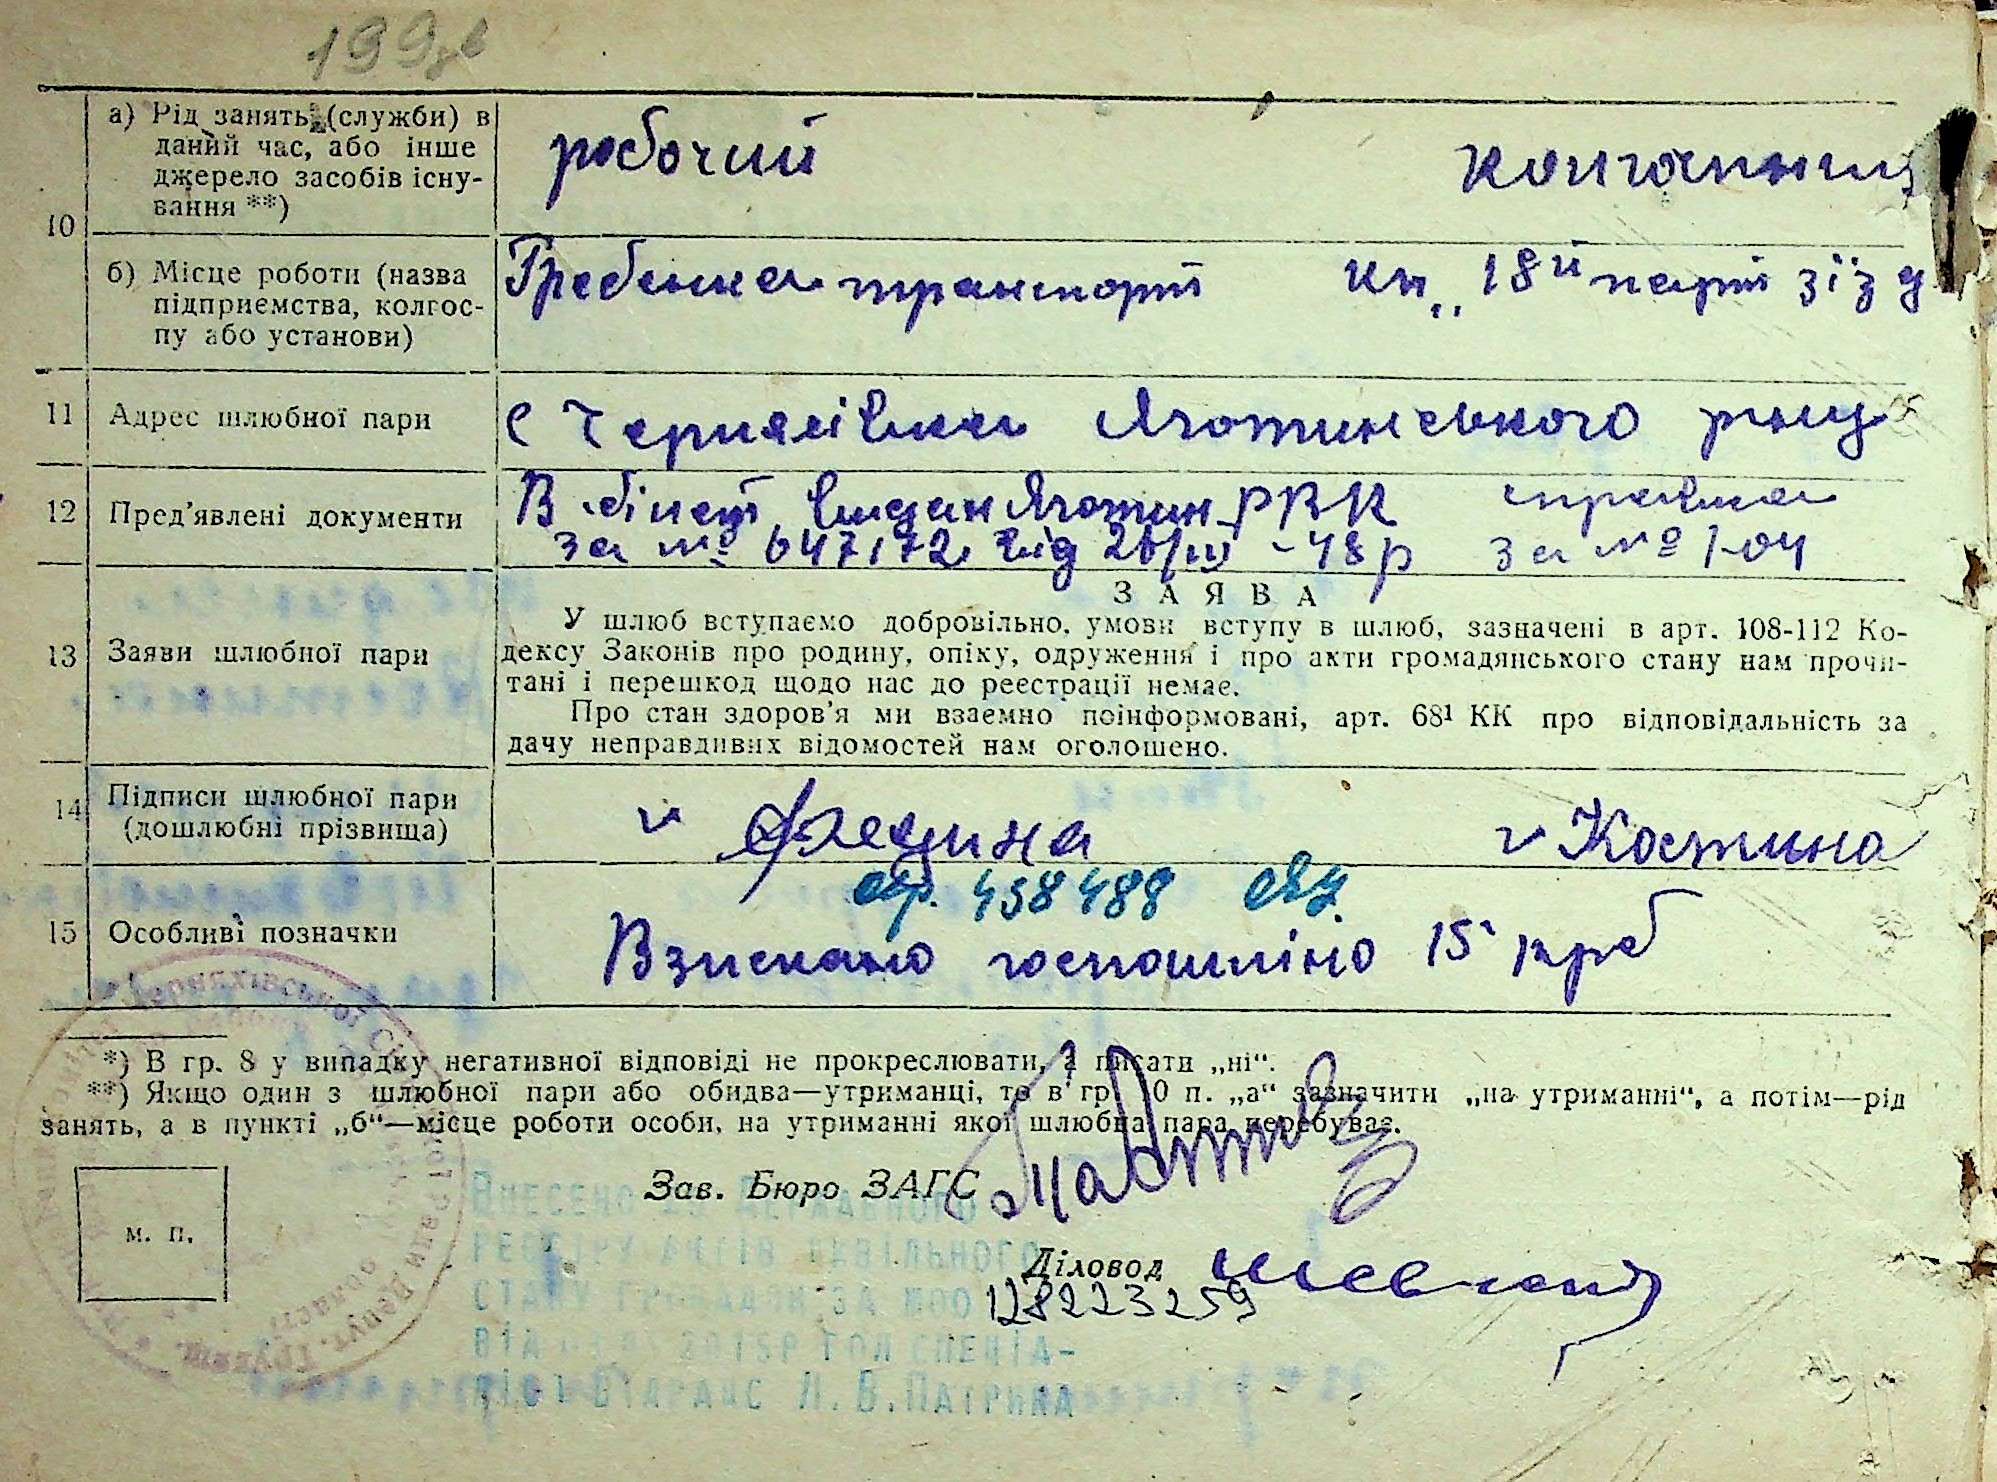 199
а) Рід занять (служби) в
даний час, або інше
джерело засобів існу-
вання **)
робочий колгоспниця
10
б) Місце роботи (назва
підприємства, колгос-
пу або установи)
Гребенка транспорт кп „18й парт зїзд
11 Адрес шлюбної пари
с Черняхівка Яготинського р-ну
12 Пред'явлені документи
В білет видан Яготин РВК справка
за № 647172 від 26/III -48р за № 104
13 Заяви шлюбної пари
ЗАЯВА
У шлюб вступаємо добровільно, умови вступу в шлюб, зазначені в арт. 108-112 Ко-
дексу Законів про родину, опіку, одруження і про акти громадянського стану нам прочи-
тані і перешкод щодо нас до реєстрації немає.
Про стан здоров'я ми взаємно поінформовані, арт. 68¹ КК про відповідальність за
дачу неправдивих відомостей нам оголошено.
14 Підписи шлюбної пари
(дошлюбні прізвища)
Костина
15 Особливі позначки
458488
Взискано госпошліно 15 крб
*) В гр. 8 у випадку негативної відповіді не прокреслювати, а писати „ні“.
**) Якщо один з шлюбної пари або обидва—утриманці, то в гр. 10 п. „а“ зазначити „на утриманні“, а потім—рід
занять, а в пункті „б“—місце роботи особи, на утриманні якої шлюбна пара перебуває.
Зав. Бюро ЗАГС
м. п.
Діловод
128223259
Внесено до Державного
реєстру актів цивільного
стану громадян за №00
від 2015р гол спеціа-
ліст ВДРАЦС Л.В.Патрика